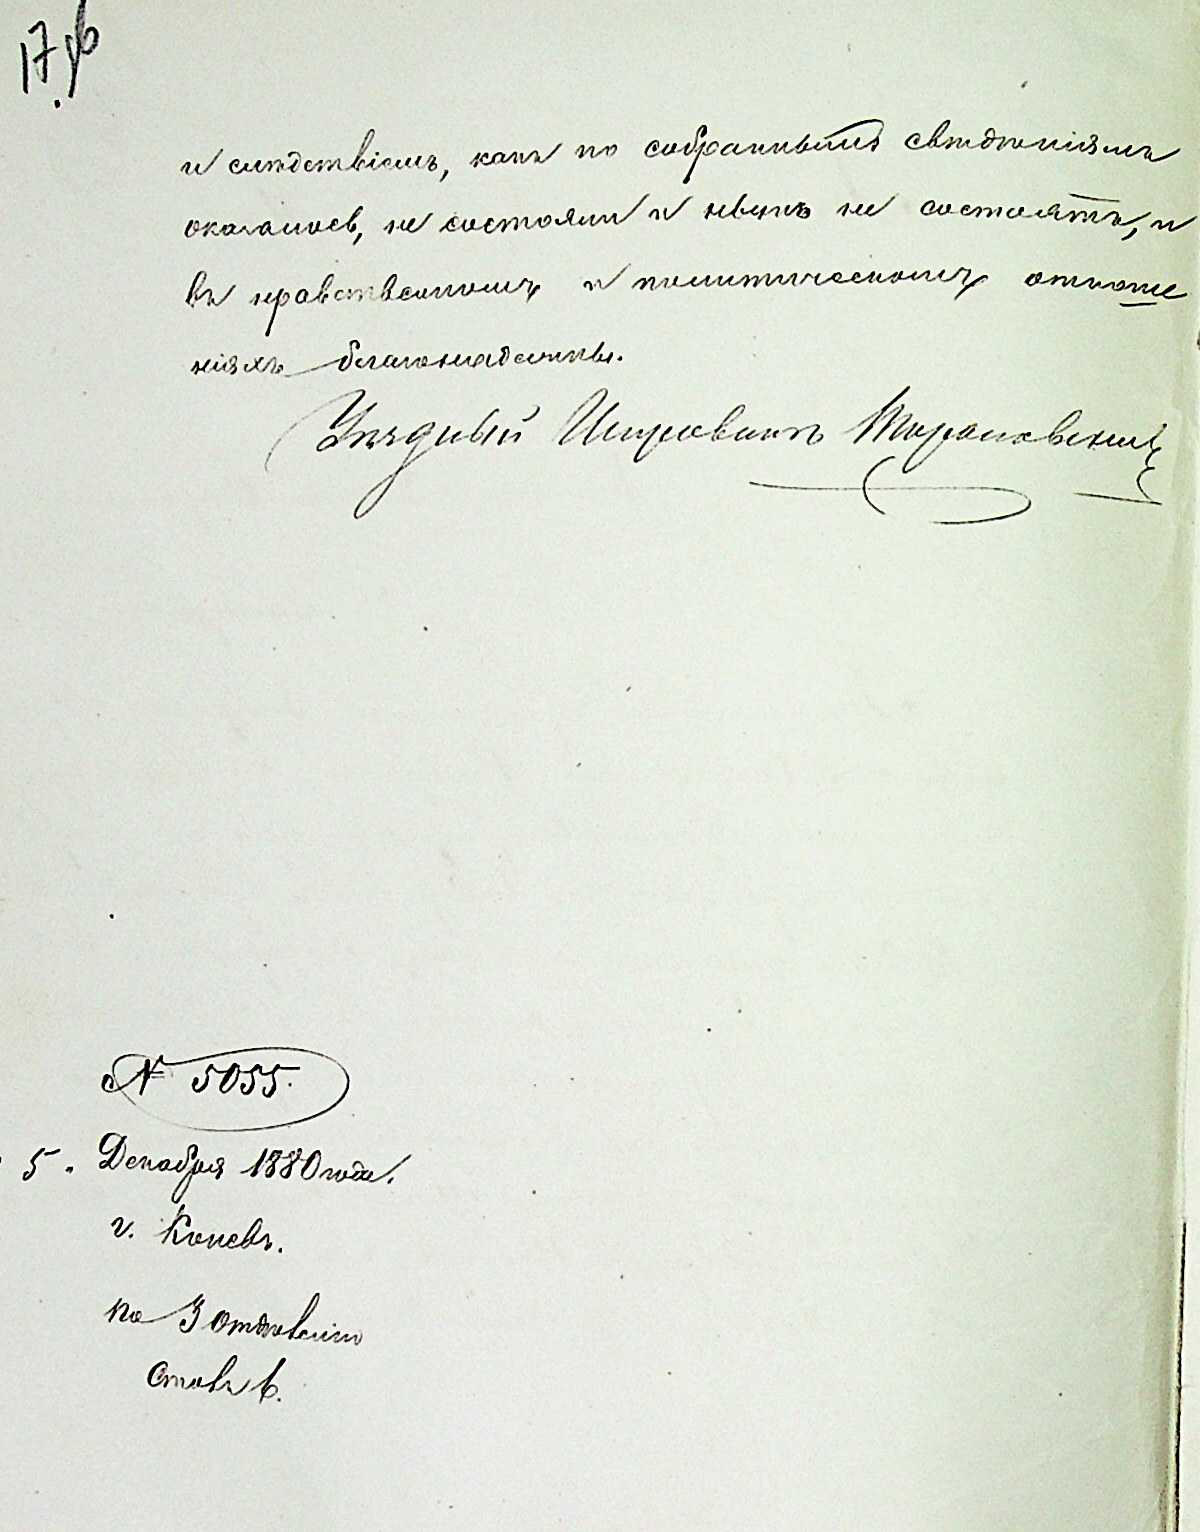 и слѣдствіемъ, какъ по собраннымъ свѣдѣніямъ
оказалось, не состояли и нынѣ не состоятъ, и
въ нравственномъ и политическомъ отноше
ніяхъ благонадежны.
Уѣздный Исправникъ
№ 5055.
5. Декабря 1880 года.
г. Каневъ.
по 3 Отдѣленію
Столъ